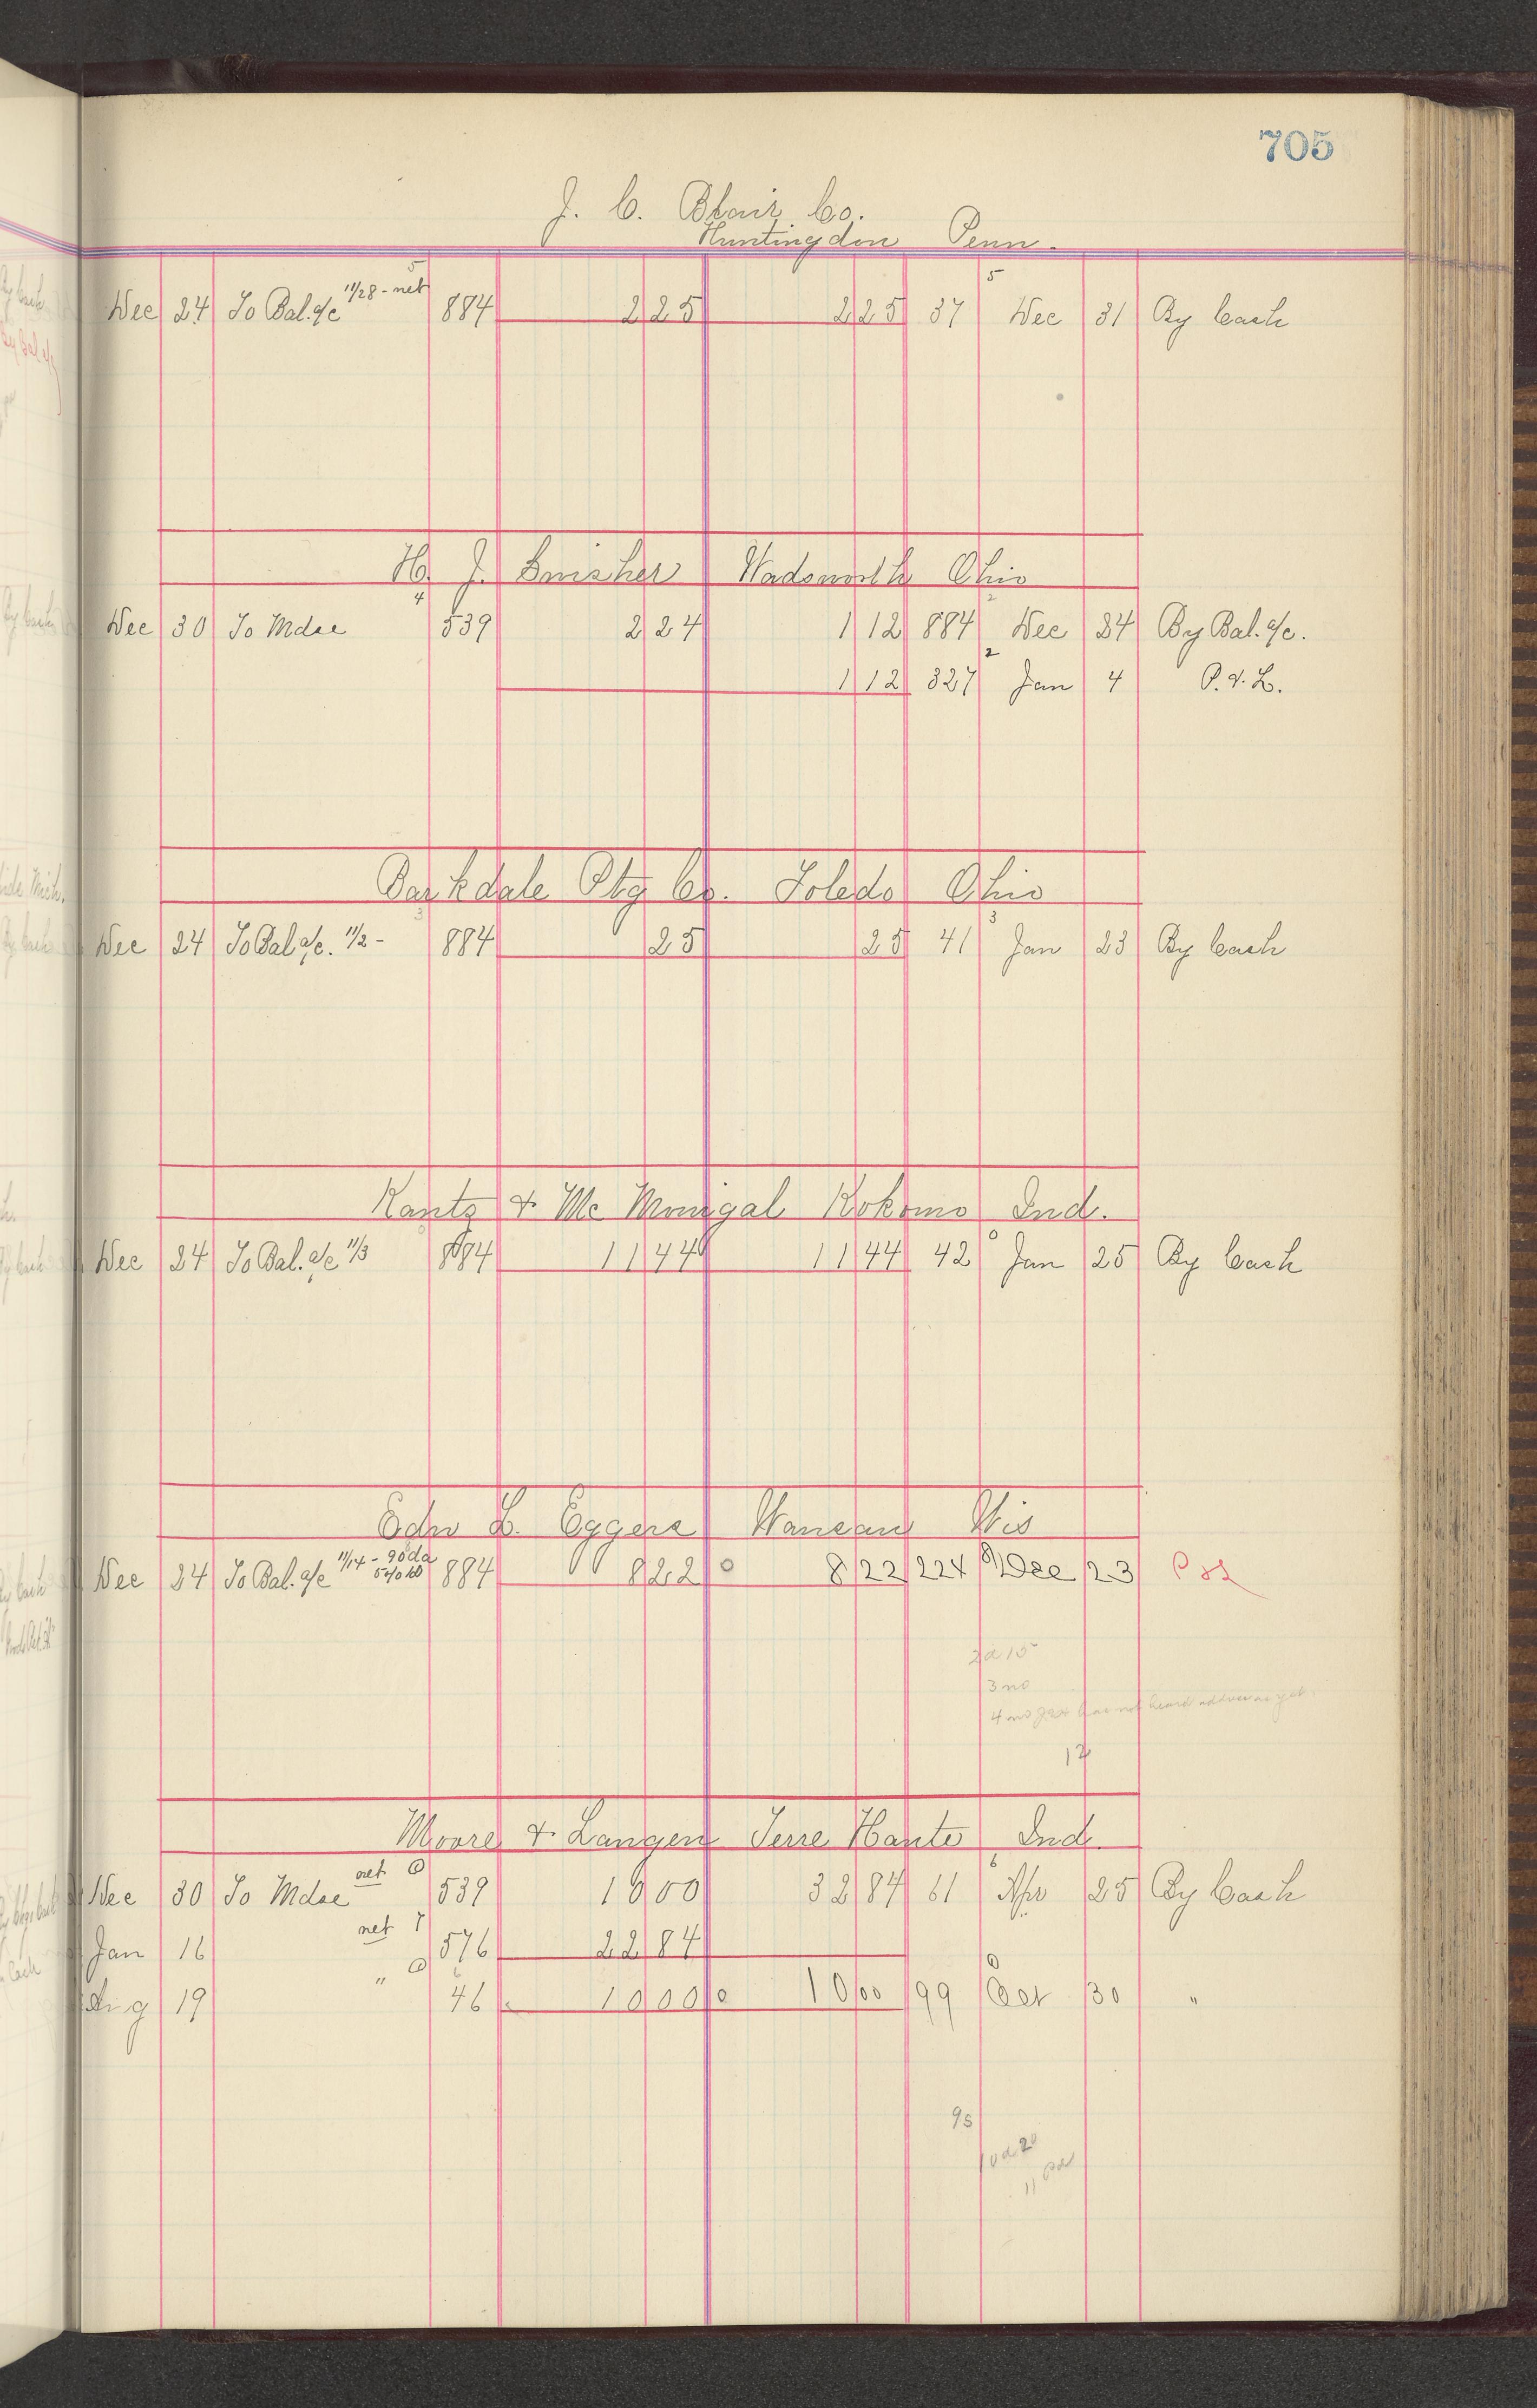 705
J. C. Blair Co.
Huntingdon Penn.
5 5
Dec 24 To Bal. a/c 11/28 - net 884 2 25 2 25 37 Dec 31 By Cash
H. J. Wadsworth Ohio
4 2
Dec 30 To Mdse 539 2 24 1 12 884 Dec 24 By Bal. a/c.
2
1 12 327 Jan 4 P. & L.
Parkdale Ptg Co. Toledo Ohio
3 3
Dec 24 To Bal a/c. 11/2 - 884 25 25 41 Jan 23 By Cash
Kantz & Mc Monigal Kokomo Ind.
Dec 24 To Bal. a/c 11/3 884 11 44 11 44 42 Jan 25 By Cash
Edw L. Eggers Wausau Wis
Dec 24 To Bal. a/c 11/14 - 90 da 884 8 22 8 22 224 Dec 23 P & L
2d 15
3 no
4 no has not heard as yet
12
Moore & Langen Terre Haute Ind.
Dec 30 To Mdse net 539 10 00 32 84 61 Apr 25 By Cash
Jan 16 net 576 22 84
Aug 19 " 46 10 00 10 00 99 Oct 30 "
95
10 d 20
11 pd